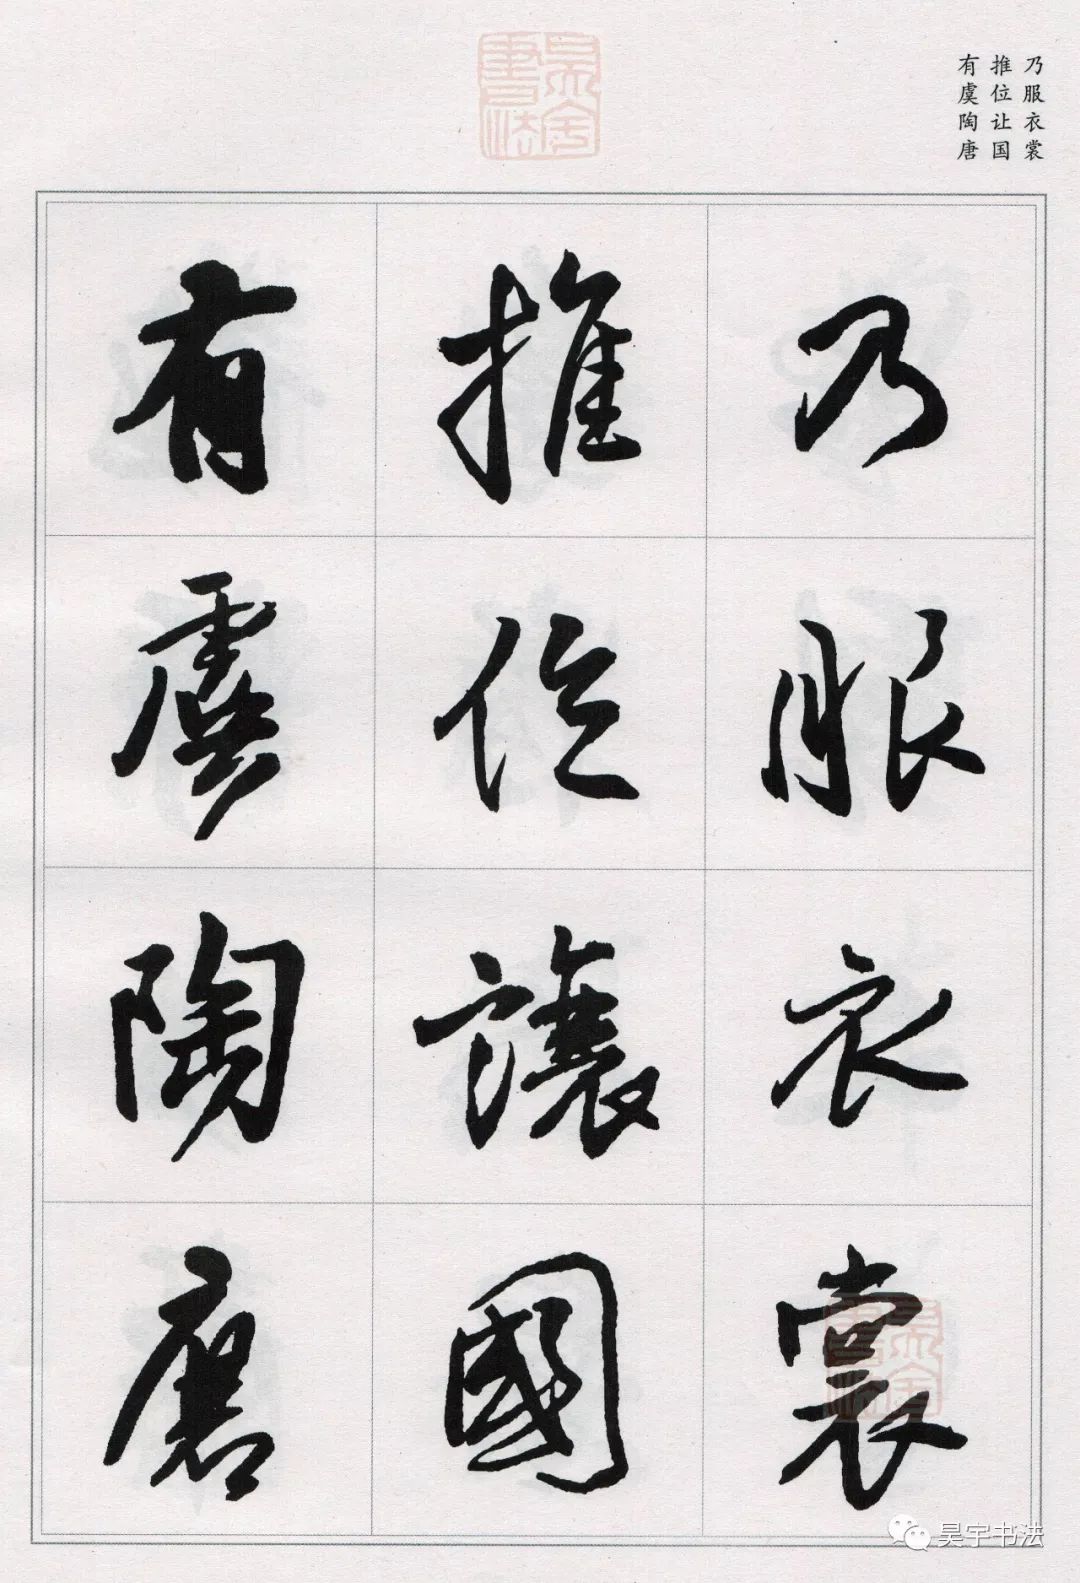 乃服衣裳
推位让国
有虞陶唐
乃服衣裳
推位讓國
有虞陶唐
昊宇书法